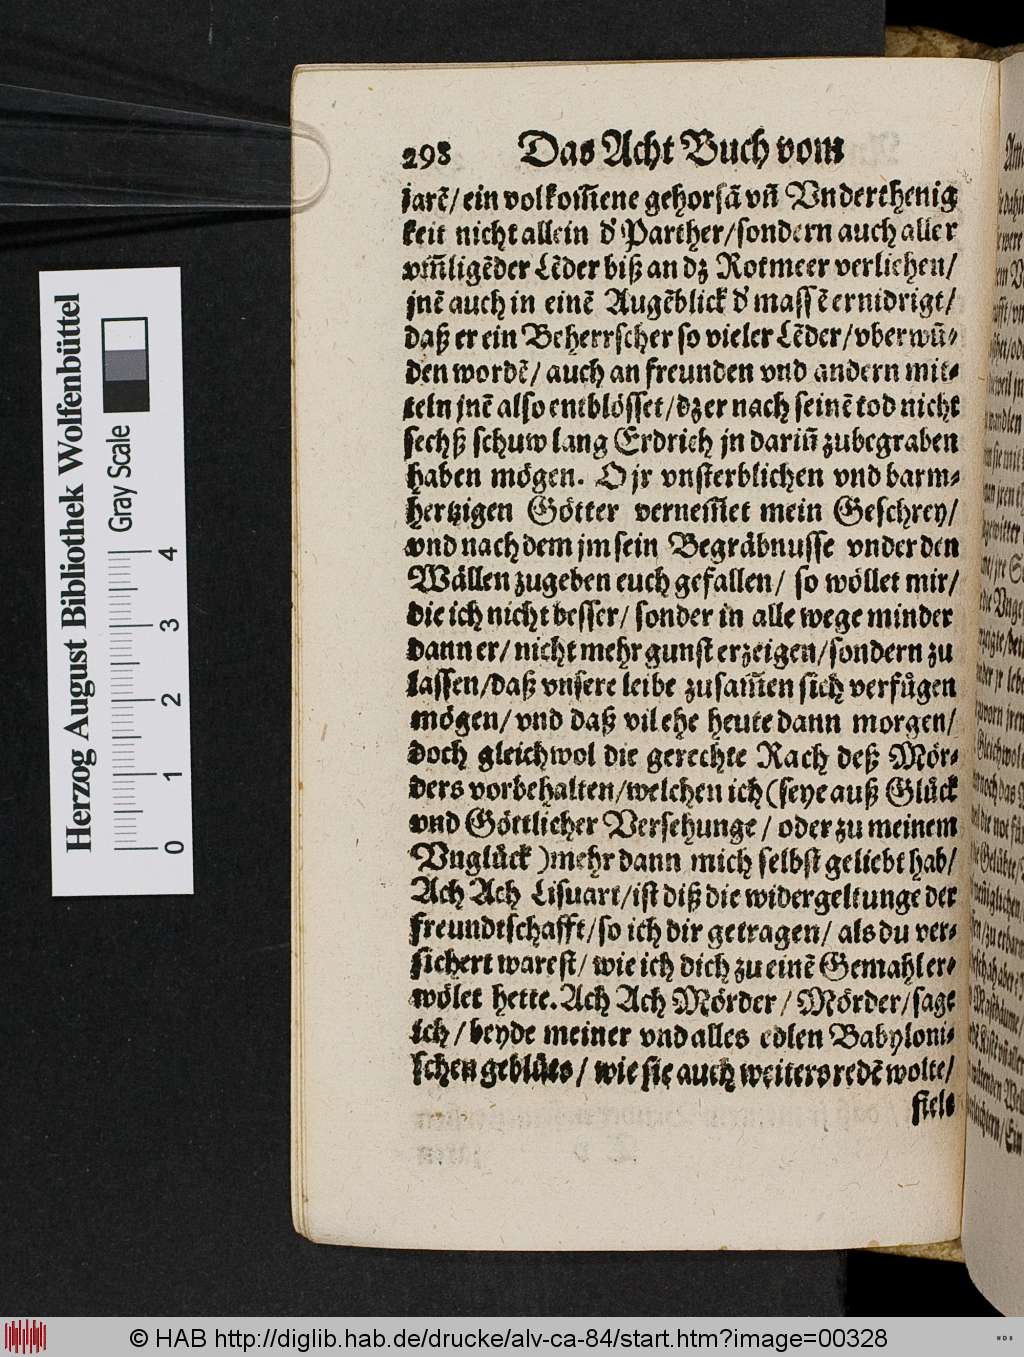 298 Das Acht Buch vom
jarẽ/ ein volkom̃ene gehorsã vñ Vnderthenig
keit nicht allein d' Parther/sondern auch aller
vm̃ligẽder Lẽder biß an dz Rotmeer verliehen/
jnẽ auch in einẽ Augẽblick d' massẽ ernidrigt/
daß er ein Beherrscher so vieler Lẽder/vberwũ-
den wordẽ/ auch an freunden vnd andern mit-
teln jnẽ also entblösset/dz er nach seinẽ tod nicht
sechß schuw lang Erdrich jn dariñ zubegraben
haben mögen. O jr vnsterblichen vnd barm-
hertzigen Götter vernem̃et mein Geschrey/
vnd nach dem jm sein Begräbnusse vnder den
Wällen zugeben euch gefallen/ so wöllet mir/
die ich nicht besser/ sonder in alle wege minder
dann er/ nicht mehr gunst erzeigen/sondern zu
lassen/daß vnsere leibe zusam̃en sich verfůgen
mögen/ vnd daß vil ehe heute dann morgen/
doch gleichwol die gerechte Rach deß Mör-
ders vorbehalten/welchen ich (seye auß Glůck
vnd Göttlicher Versehunge / oder zu meinem
Vnglůck )mehr dann mich selbst geliebt hab/
Ach Ach Lisuart/ist diß die widergeltunge der
freundtschafft/so ich dir getragen/ als du ver-
sichert warest/ wie ich dich zu einẽ Gemahl er-
wölet hette. Ach Ach Mörder / Mörder/sage
ich / beyde meiner vnd alles edlen Babyloni-
schen geblůts / wie sie auch weiters redẽ wolte/
fiele
Herzog August Bibliothek Wolfenbüttel
Gray Scale
0 1 2 3 4
© HAB http://diglib.hab.de/drucke/alv-ca-84/start.htm?image=00328